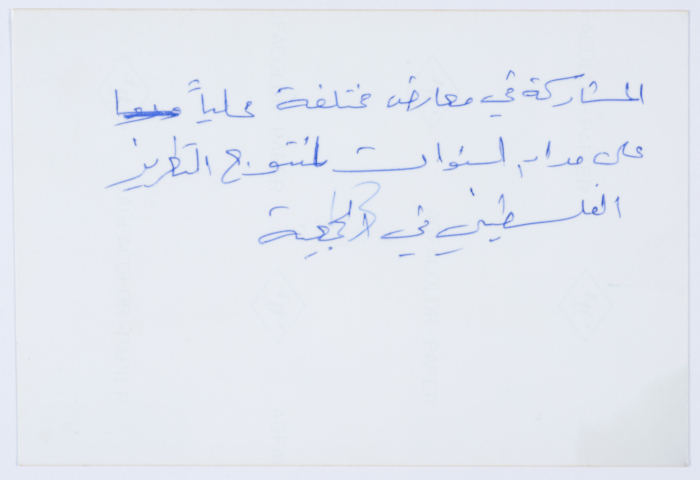 المشاركة في معارض مختلفة محلياً
على مدار السنوات لمنتوج التطريز
الفلسطيني في الجمعية